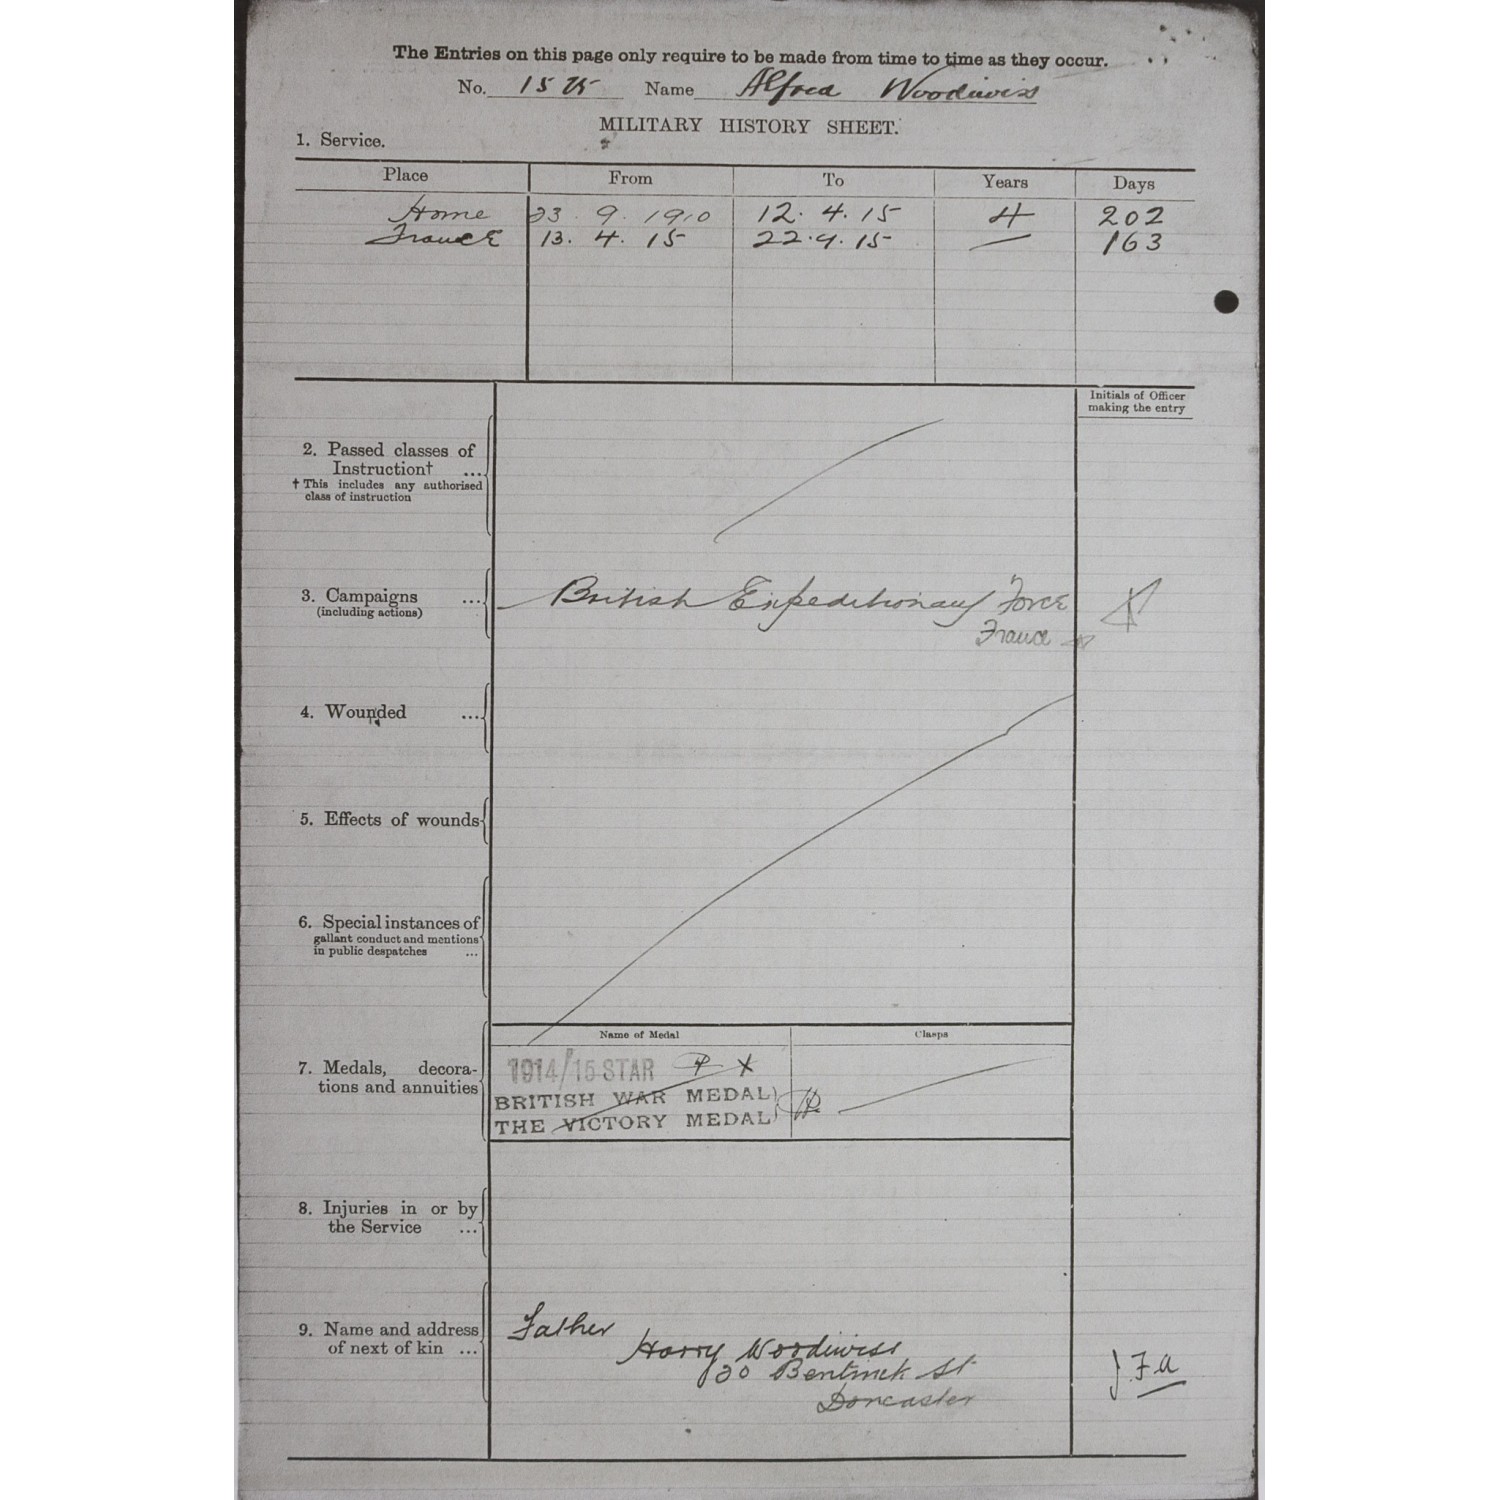 The Entries on this page only require to be made from time to time as they occur.
No. 1525 Name Alfred Woodiwiss
MILITARY HISTORY SHEET.
1. Service.
Place From To Years Days
Home 23 . 9 . 1910 12 . 4 . 15 4 202
France 13 . 4 . 15 22 . 9 . 15 — 163
Initials of Officer
making the entry
2. Passed classes of
Instruction† ...
† This includes any authorised
class of instruction
3. Campaigns ... British Expeditionary Force
(including actions)
France
4. Wounded ...
5. Effects of wounds
6. Special instances of
gallant conduct and mentions
in public despatches ...
Name of Medal Clasps
7. Medals, decora-
tions and annuities
1914/15 STAR
BRITISH WAR MEDAL
THE VICTORY MEDAL
8. Injuries in or by
the Service ...
9. Name and address
of next of kin ...
Father
Harry Woodiwiss
20 Bentinck St
Doncaster
J.F.A